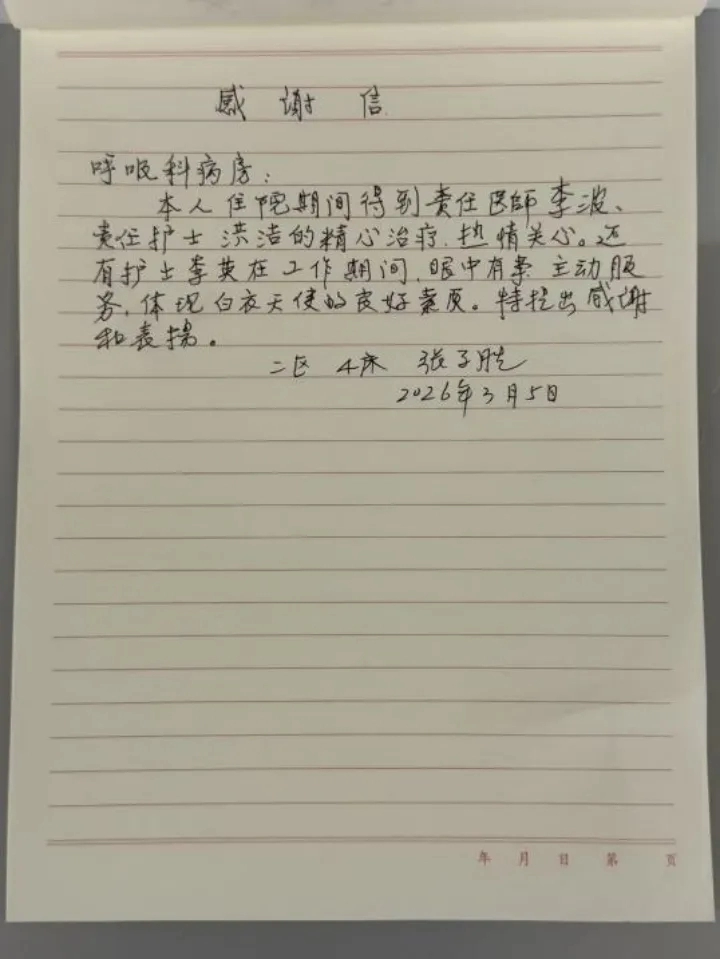 感谢信
呼吸科病房：
本人住院期间得到责任医师李波、
责任护士洪洁的精心治疗，热情关心。还
有护士李英在工作期间，眼中有案主动服
务，体现白衣天使的良好素质。特提出感谢
和表扬。
二区 4床 张子胜
2026年3月5日
年 月 日 第 页